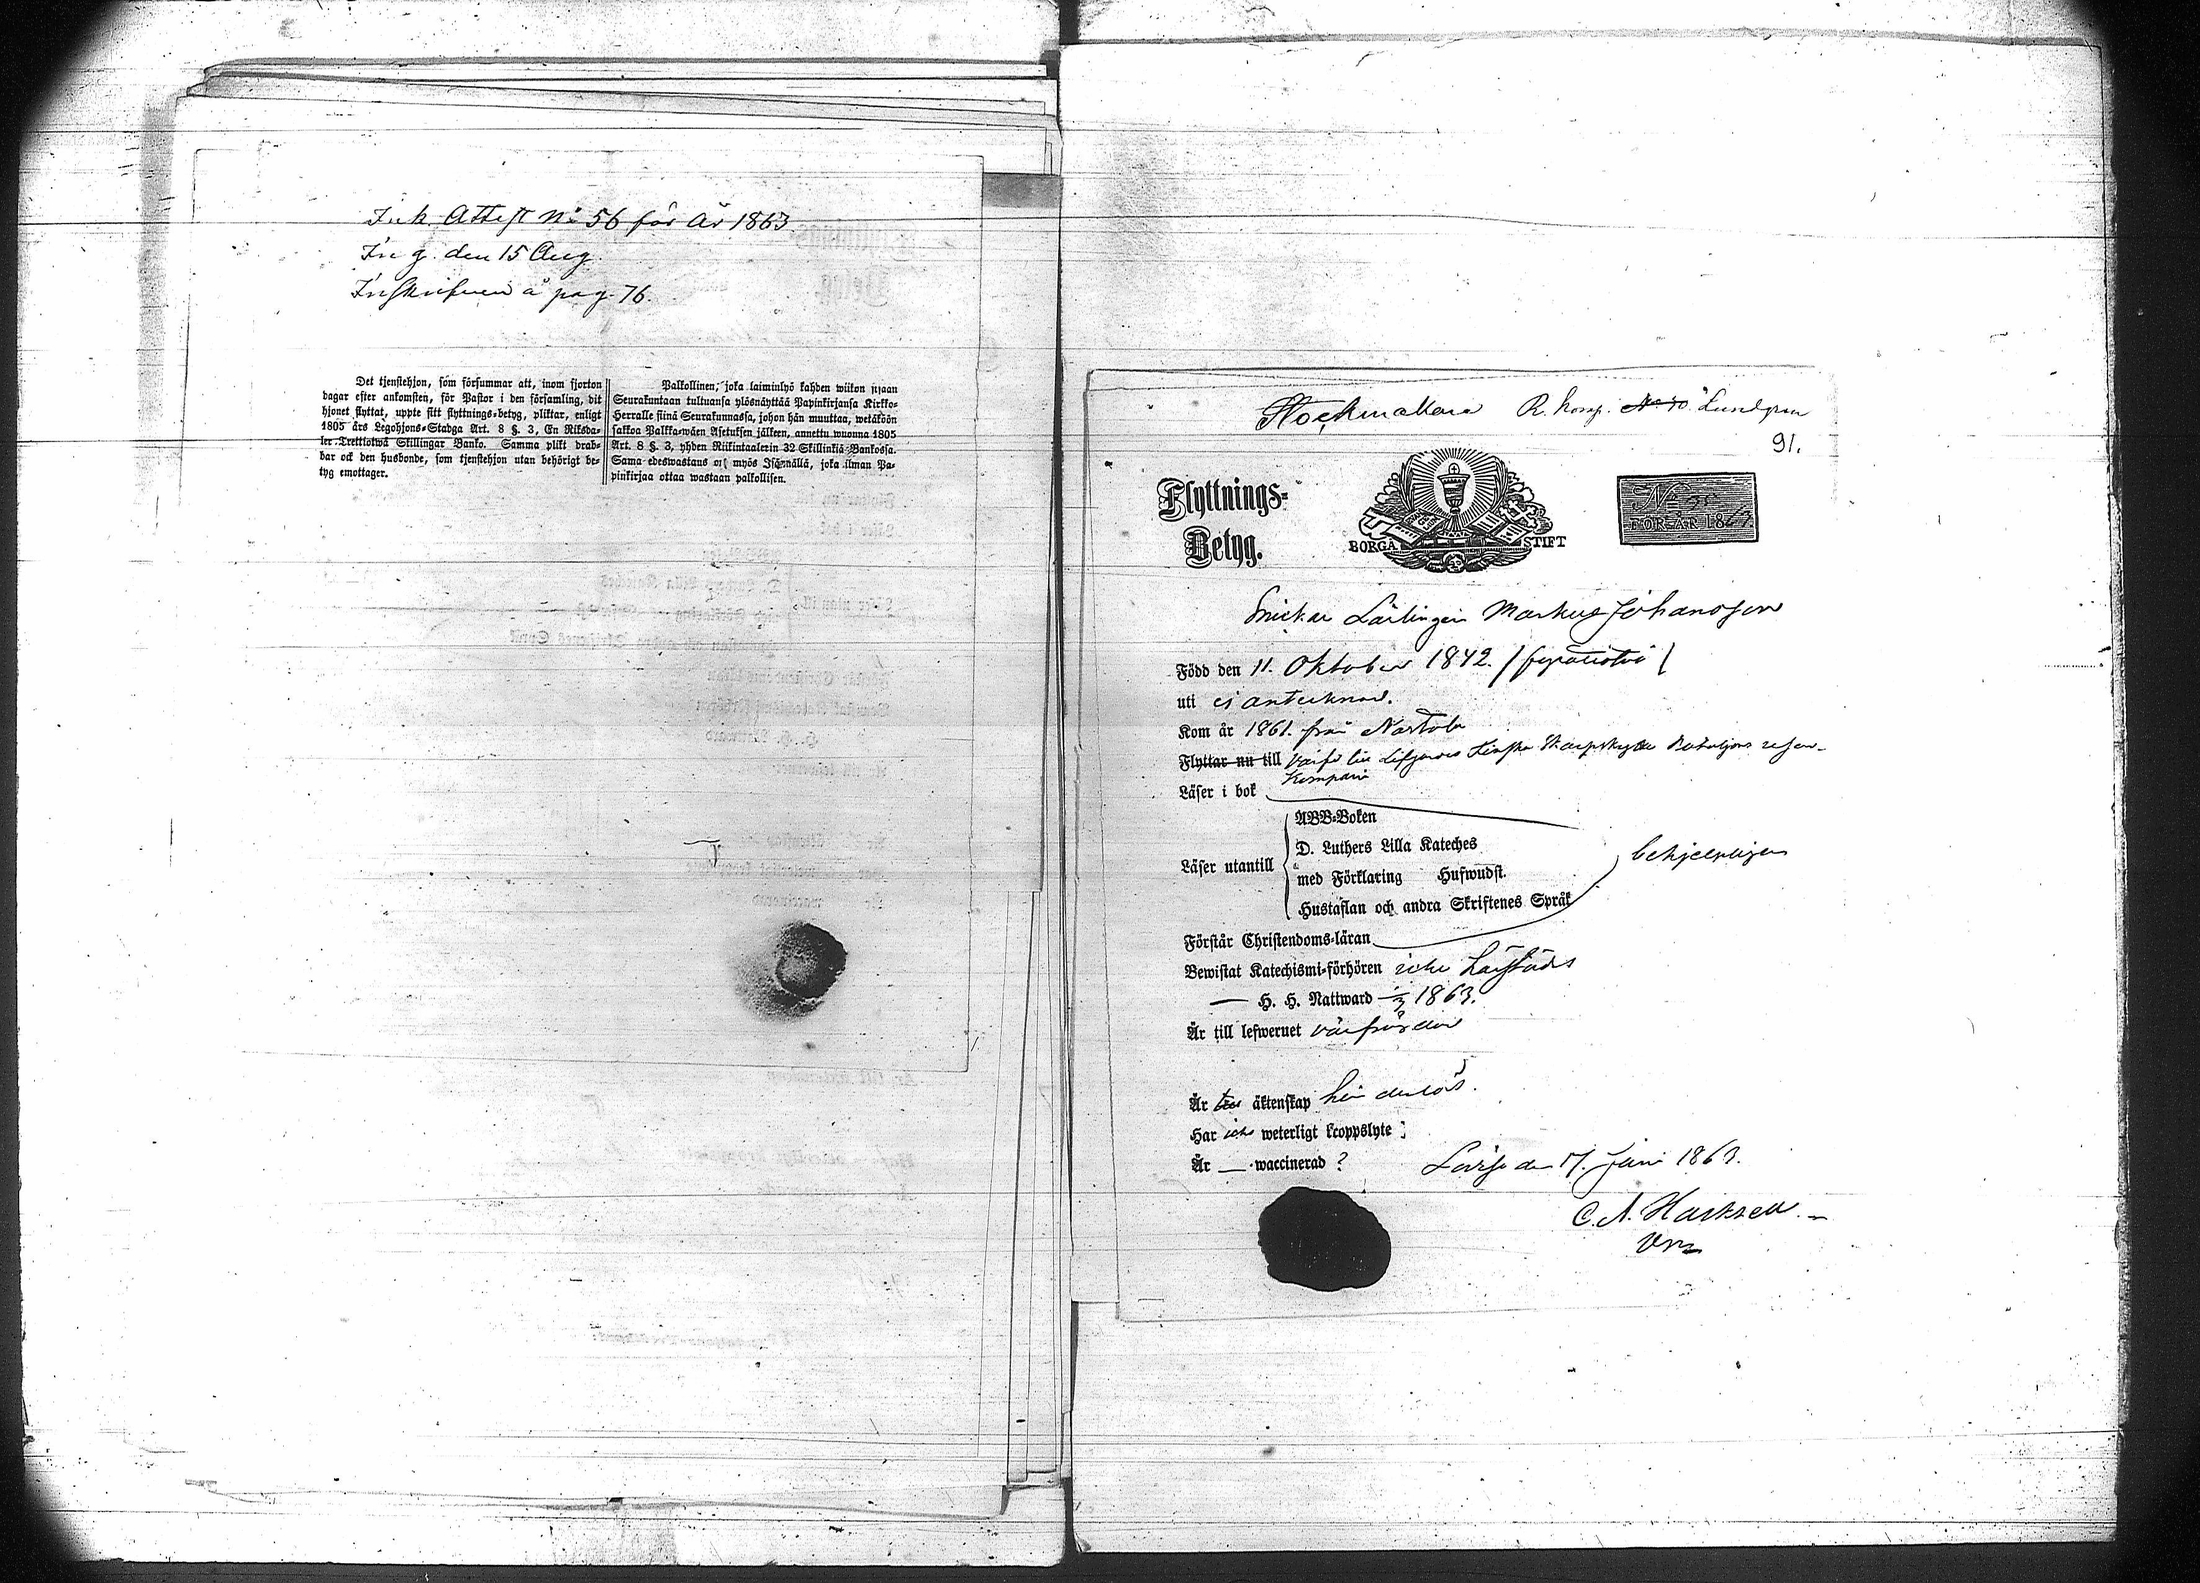 Ink. Attest No 56 för år 1863
Ing. den 15 Aug.
Inskrifven å pag. 76.
Det tjenstehjon, som försummar att, inom fjorton
dagar efter ankomsten, för Pastor i den församling, dit
hjonet flyttat, uppte sitt flyttnings-betyg, pliktar, enligt
1805 års Legohjons-Stadga Art. 8 §. 3, En Riksda-
ler Trettiotwå Skillingar Banko. Samma plikt drab-
bar ock den husbonde, som tjenstehjon utan behörigt be-
tyg emottager.
Palkollinen, joka laiminlyö kahden wiikon sisään
Seurakuntaan tultuansa ylösnäyttää Papinkirjansa Kirkko-
Herralle siinä Seurakunnassa, johon hän muuttaa, wetäköön
sakkoa Palkka-wäen Asetuksen jälkeen, annettu wuonna 1805
Art. 8 §. 3, yhden Riikintaalerin 32 Skillinkiä Bankossa.
Sama edeswastaus on myös Isännällä, joka ilman Pa-
pinkirjaa ottaa wastaan palkollisen.
R. Komp. No 70 Lundgren
91.
Flyttnings-
Betyg.
BORGÅ STIFT
No
FÖR ÅR 1863.
Snickare Lärlingen Markus Johansson
Född den 11. Oktober 1842. / fyratiotvå /
uti ej antecknad.
Kom år 1861. från
Flyttar nu till Finska Skarpskytte Bataljons reserv-
Kompani
Läser i bok
Läser utantill
ABB-Boken
D. Luthers Lilla Kateches
med Förklaring Hufwudst.
Hustaflan och andra Skriftenes Språk
behjelpligen
Förstår Christendoms-läran
Bewistat Katechismi-förhören icke härstädes
— H. H. Nattward 1863.
Är till lefwernet
Är till äktenskap hinderlös.
Har icke weterligt kroppslyte;
Är — waccinerad ?
Lovisa den 17. Juni 1863.
C. A.